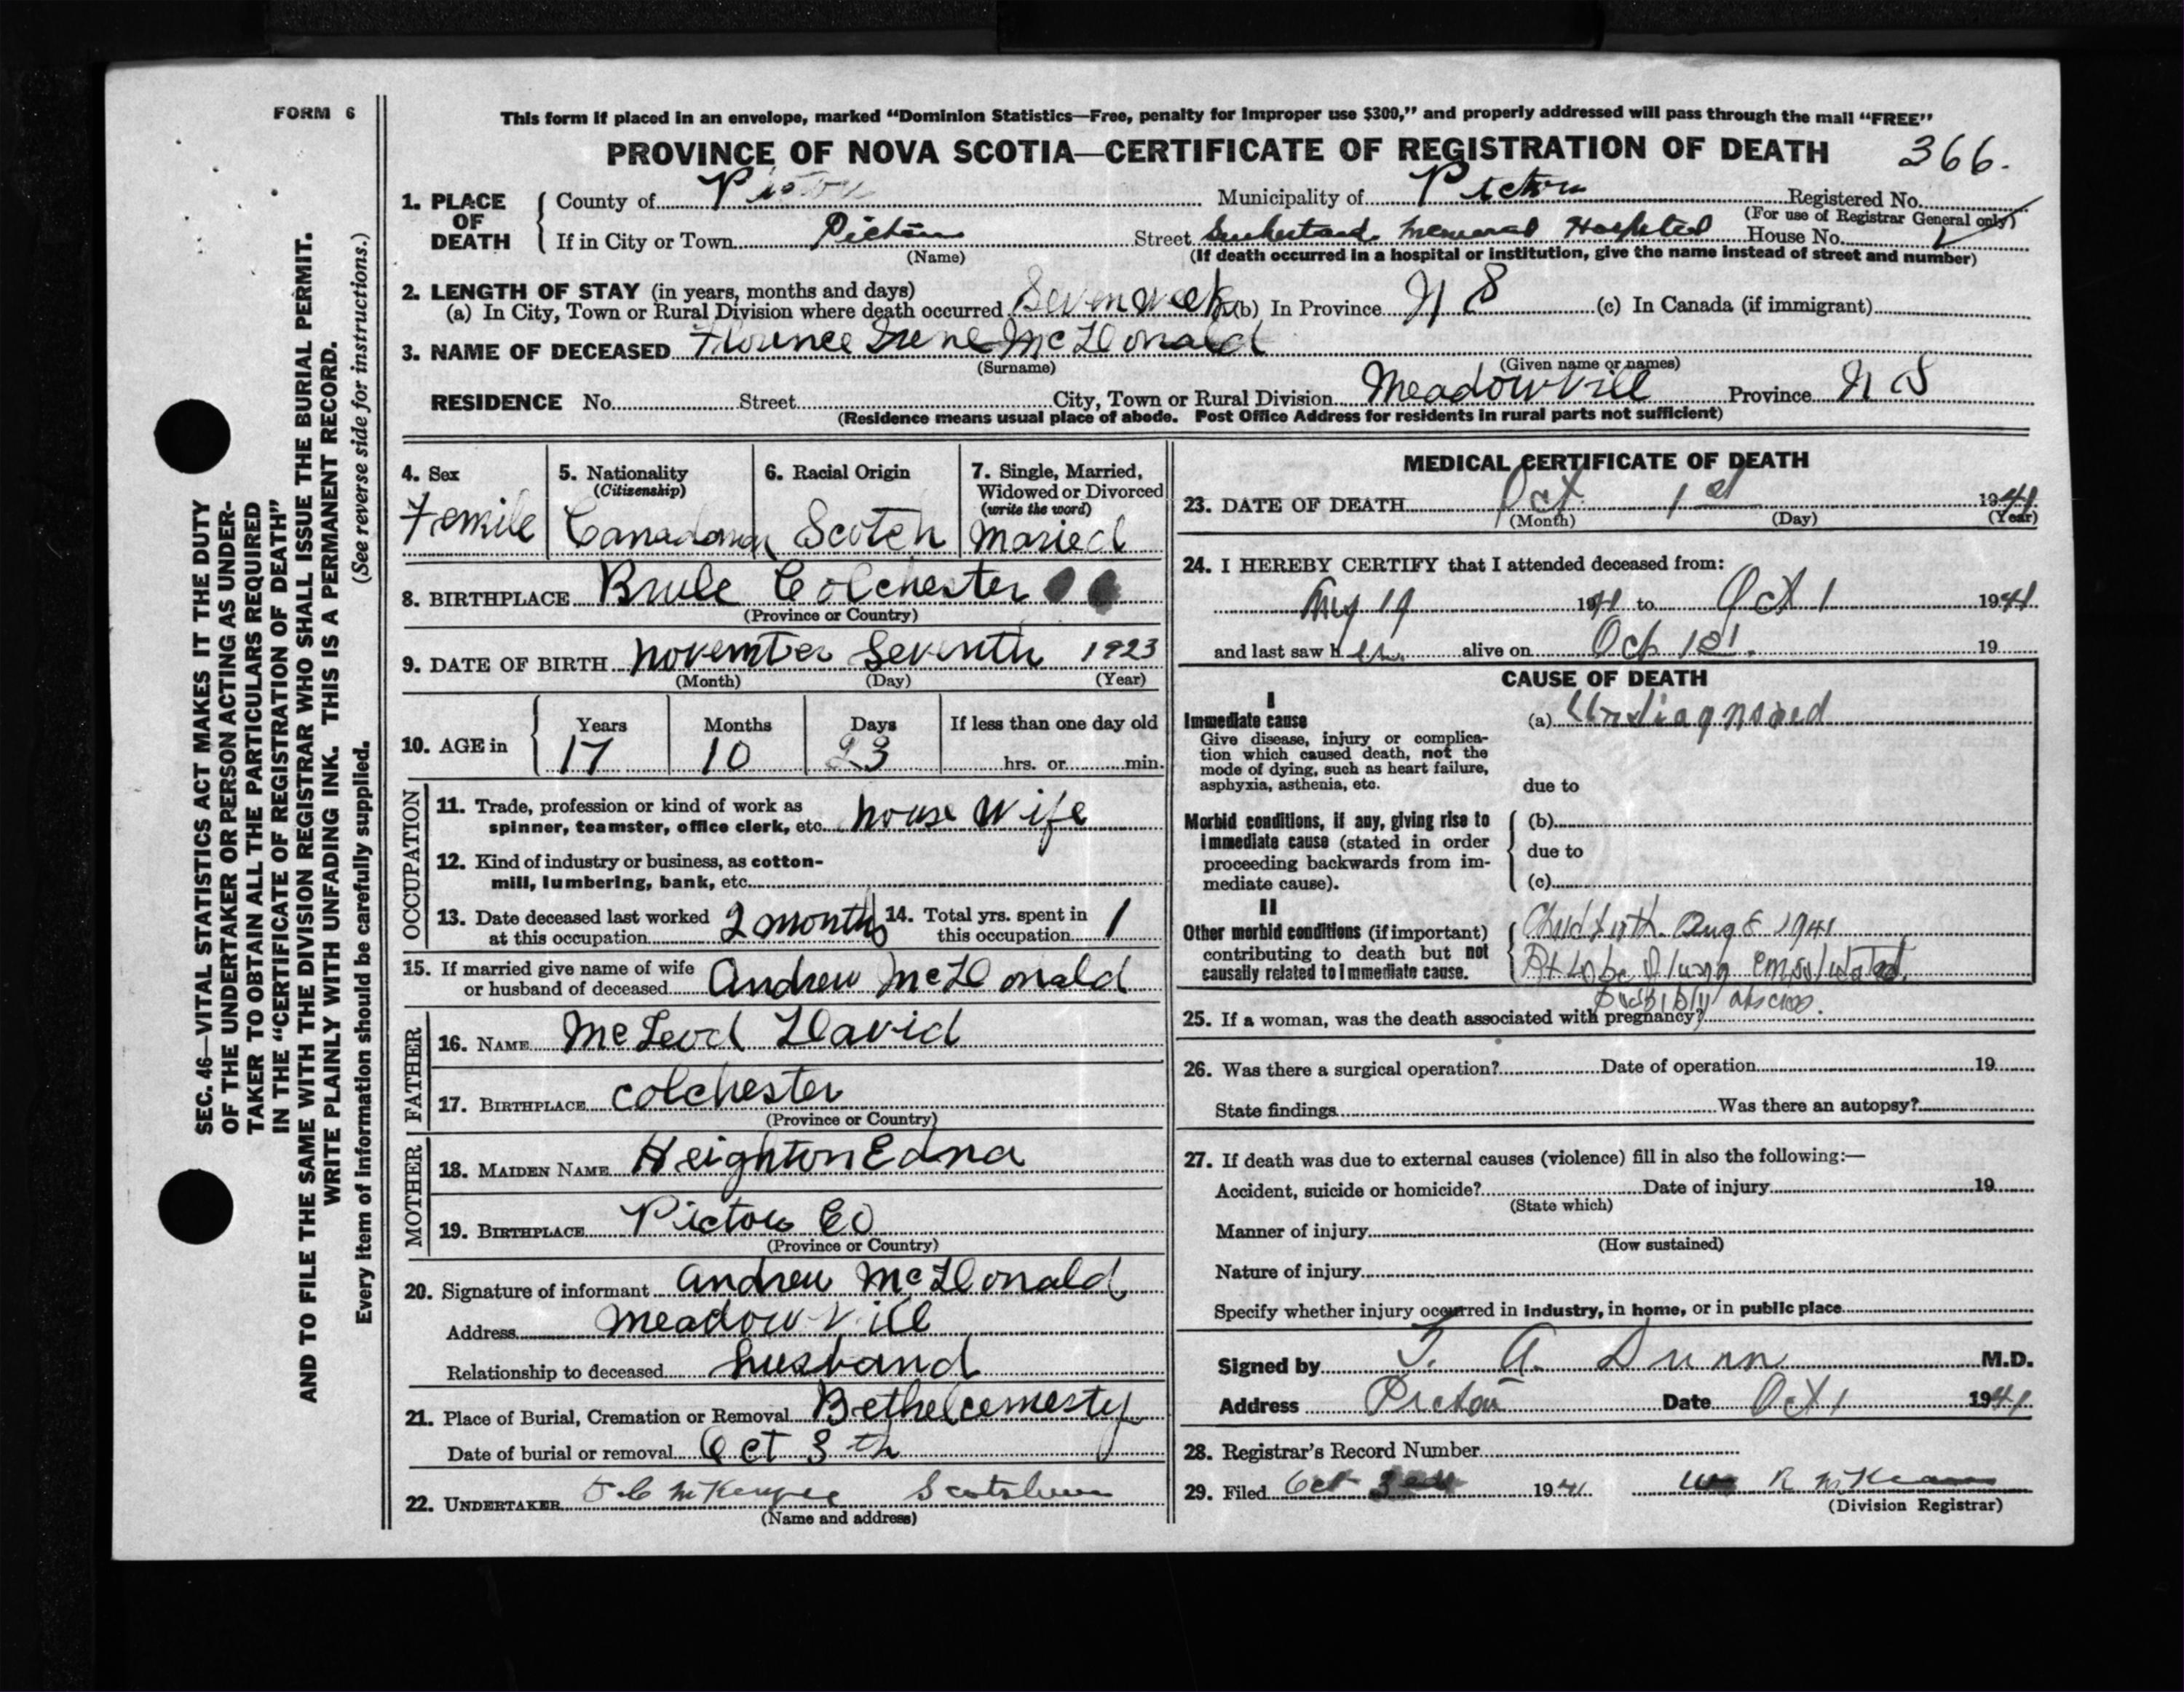 FORM 6
This form if placed in an envelope, marked “Dominion Statistics—Free, penalty for improper use $300,” and properly addressed will pass through the mail “FREE”
PROVINCE OF NOVA SCOTIA—CERTIFICATE OF REGISTRATION OF DEATH 366.
1. PLACE OF DEATH
County of Pictou Municipality of Pictou Registered No.
(For use of Registrar General only)
If in City or Town Pictou Street Sutherland Memorial Hospital House No.
(Name) (If death occurred in a hospital or institution, give the name instead of street and number)
2. LENGTH OF STAY (in years, months and days)
(a) In City, Town or Rural Division where death occurred Seven week (b) In Province N S (c) In Canada (if immigrant)
3. NAME OF DECEASED Florence Irene McDonald
(Surname) (Given name or names)
RESIDENCE No. Street City, Town or Rural Division Meadowvill Province N S
(Residence means usual place of abode. Post Office Address for residents in rural parts not sufficient)
4. Sex
Femile
5. Nationality
(Citizenship)
6. Racial Origin
Scotch
7. Single, Married,
Widowed or Divorced
(write the word)
Maried
8. BIRTHPLACE Brule Colchester
(Province or Country)
9. DATE OF BIRTH November Seventh 1923
(Month) (Day) (Year)
10. AGE in
Years Months Days If less than one day old
17 10 23 hrs. or min.
OCCUPATION
11. Trade, profession or kind of work as
spinner, teamster, office clerk, etc. house wife
12. Kind of industry or business, as cotton-
mill, lumbering, bank, etc.
13. Date deceased last worked
at this occupation 2 months
14. Total yrs. spent in
this occupation 1
15. If married give name of wife
or husband of deceased Andrew McDonald
FATHER
16. NAME McLeod David
17. BIRTHPLACE colchester
(Province or Country)
MOTHER
18. MAIDEN NAME Heighton Edna
19. BIRTHPLACE Pictou Co
(Province or Country)
20. Signature of informant Andrew McDonald
Address Meadow vill
Relationship to deceased husband
21. Place of Burial, Cremation or Removal Bethel cemesty
Date of burial or removal Oct 3 th
22. UNDERTAKER
(Name and address)
MEDICAL CERTIFICATE OF DEATH
23. DATE OF DEATH Oct 1st 1941
(Month) (Day) (Year)
24. I HEREBY CERTIFY that I attended deceased from:
Aug 19 1941 to Oct 1 1941
and last saw her alive on Oct 1st. 19
CAUSE OF DEATH
I
Immediate cause
Give disease, injury or complica-
tion which caused death, not the
mode of dying, such as heart failure,
asphyxia, asthenia, etc.
(a) Undiagnosed
due to
Morbid conditions, if any, giving rise to
immediate cause (stated in order
proceeding backwards from im-
mediate cause).
(b)
due to
(c)
II
Other morbid conditions (if important)
contributing to death but not
causally related to immediate cause.
Childbirth Aug 8 1941
Rt Lobe of lung
possibly abscess.
25. If a woman, was the death associated with pregnancy?
26. Was there a surgical operation? Date of operation 19
State findings Was there an autopsy?
27. If death was due to external causes (violence) fill in also the following:—
Accident, suicide or homicide? Date of injury 19
(State which)
Manner of injury
(How sustained)
Nature of injury
Specify whether injury occurred in industry, in home, or in public place
Signed by T. A. Dunn M.D.
Address Pictou Date Oct 1 1941
28. Registrar's Record Number
29. Filed Oct 1941.
(Division Registrar)
SEC. 46—VITAL STATISTICS ACT MAKES IT THE DUTY
OF THE UNDERTAKER OR PERSON ACTING AS UNDER-
TAKER TO OBTAIN ALL THE PARTICULARS REQUIRED
IN THE “CERTIFICATE OF REGISTRATION OF DEATH”
AND TO FILE THE SAME WITH THE DIVISION REGISTRAR WHO SHALL ISSUE THE BURIAL PERMIT.
WRITE PLAINLY WITH UNFADING INK. THIS IS A PERMANENT RECORD.
Every item of information should be carefully supplied. (See reverse side for instructions.)